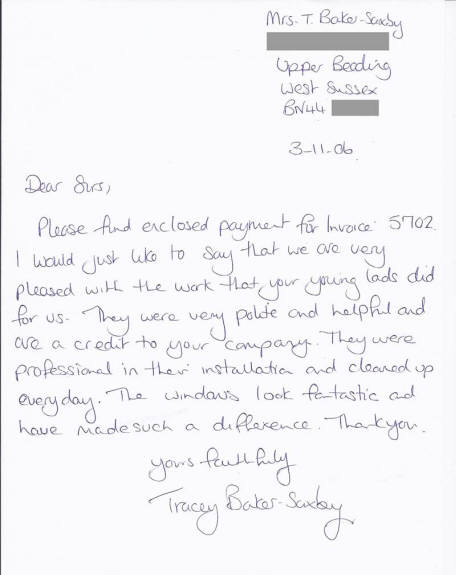 Mrs. T. Baker-Saxby
Upper Beeding
West Sussex
BN44
3-11-06
Dear Sirs,
Please find enclosed payment for Invoice 5702.
I would just like to say that we are very
pleased with the work that your young lads did
for us. They were very polite and helpful and
are a credit to your company. They were
professional in their installation and cleared up
everyday. The windows look fantastic and
have made such a difference. Thankyou.
Yours faithfully
Tracey Baker-Saxby